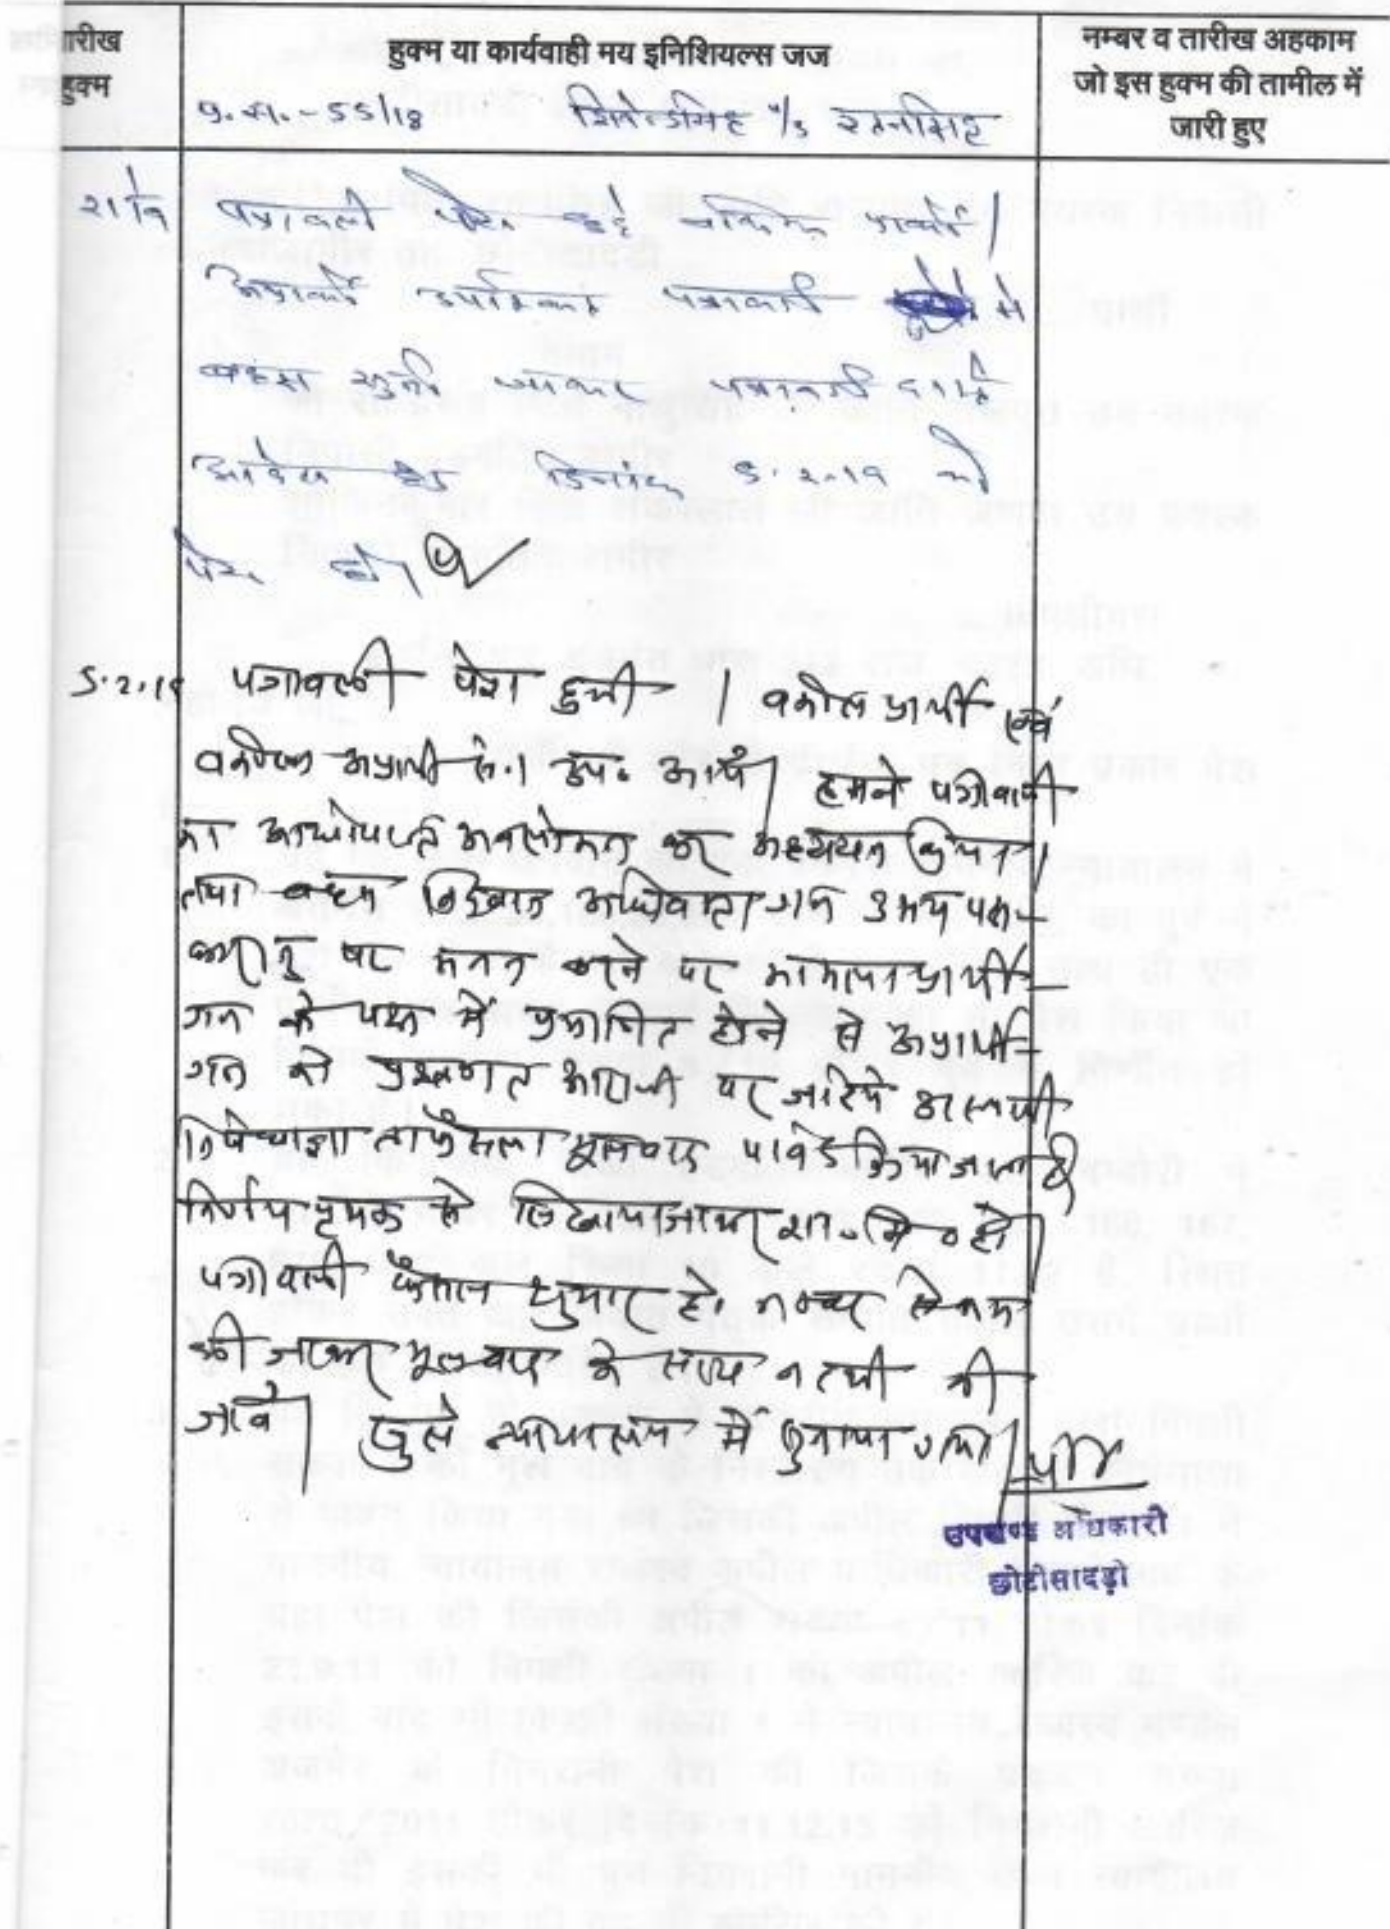 तारीख
हुक्म
हुक्म या कार्यवाही मय इनिशियल्स जज
नम्बर व तारीख अहकाम
जो इस हुक्म की तामील में
जारी हुए
55/18
पत्रावली पेश हुई
बहस सुनी जाकर पत्रावली वास्ते
आदेश हेतु दिनांक 5.2.19 को
पेश हो।
5.2.19 पत्रावली पेश हुयी । वकील प्रार्थी एवं
वकील अप्रार्थी सं.1 उप. आये। हमने पत्रावली
का आद्योपान्त अवलोकन कर अध्ययन किया।
तथा बहस विद्वान अधिवक्ता गण उभय पक्ष-
कारान् पर मनन करने पर मामला प्रार्थी-
गण के पक्ष में प्रमाणित होने से अप्रार्थी-
गण को प्रश्नगत आराजी पर जरिये अस्थायी
निषेधाज्ञा ताफैसला मूलवाद पाबंद किया जाता है
निर्णय पृथक से लिखाया जाकर शा. मि हो।
पत्रावली फैसल शुमार हो. नम्बर से कम
की जाकर मूलवाद के साथ नत्थी की
जावे। खुले न्यायालय में सुनाया गया।
उपखण्ड अधिकारी
छोटीसादड़ी